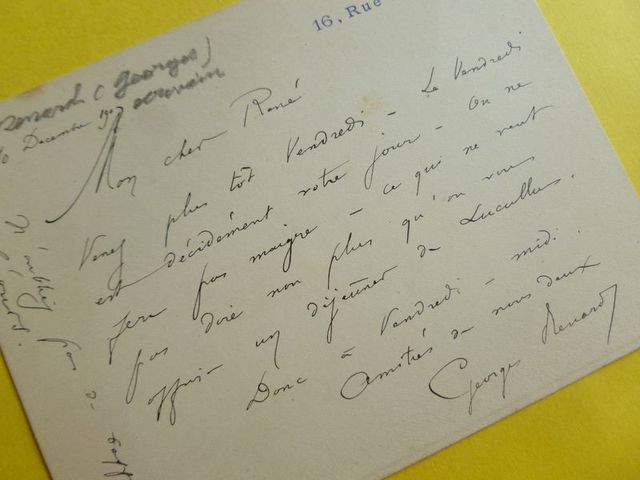 16, Rue
Renard (Georges)
écrivain
10 Décembre
Mon cher René
Venez plus tôt Vendredi - Le Vendredi
est décidément votre jour - On ne
fera pas maigre - ce qui ne veut
pas dire non plus qu'on vous
offrira un déjeuner de Lucullus.
Donc à Vendredi - midi.
Amitiés de nous deux
Georges Renard
N'oubliez pas